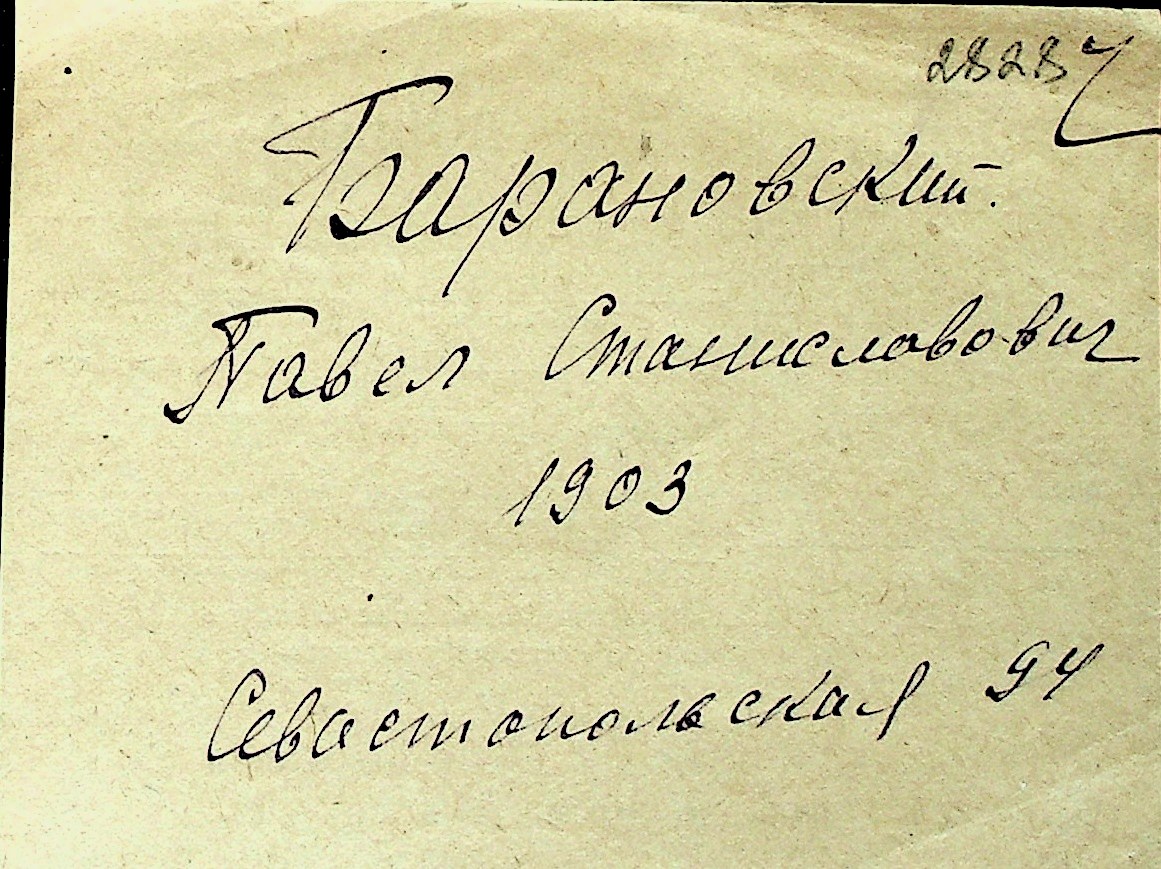 2828
Барановский.
Павел Станиславович
1903
Севастопольская 94